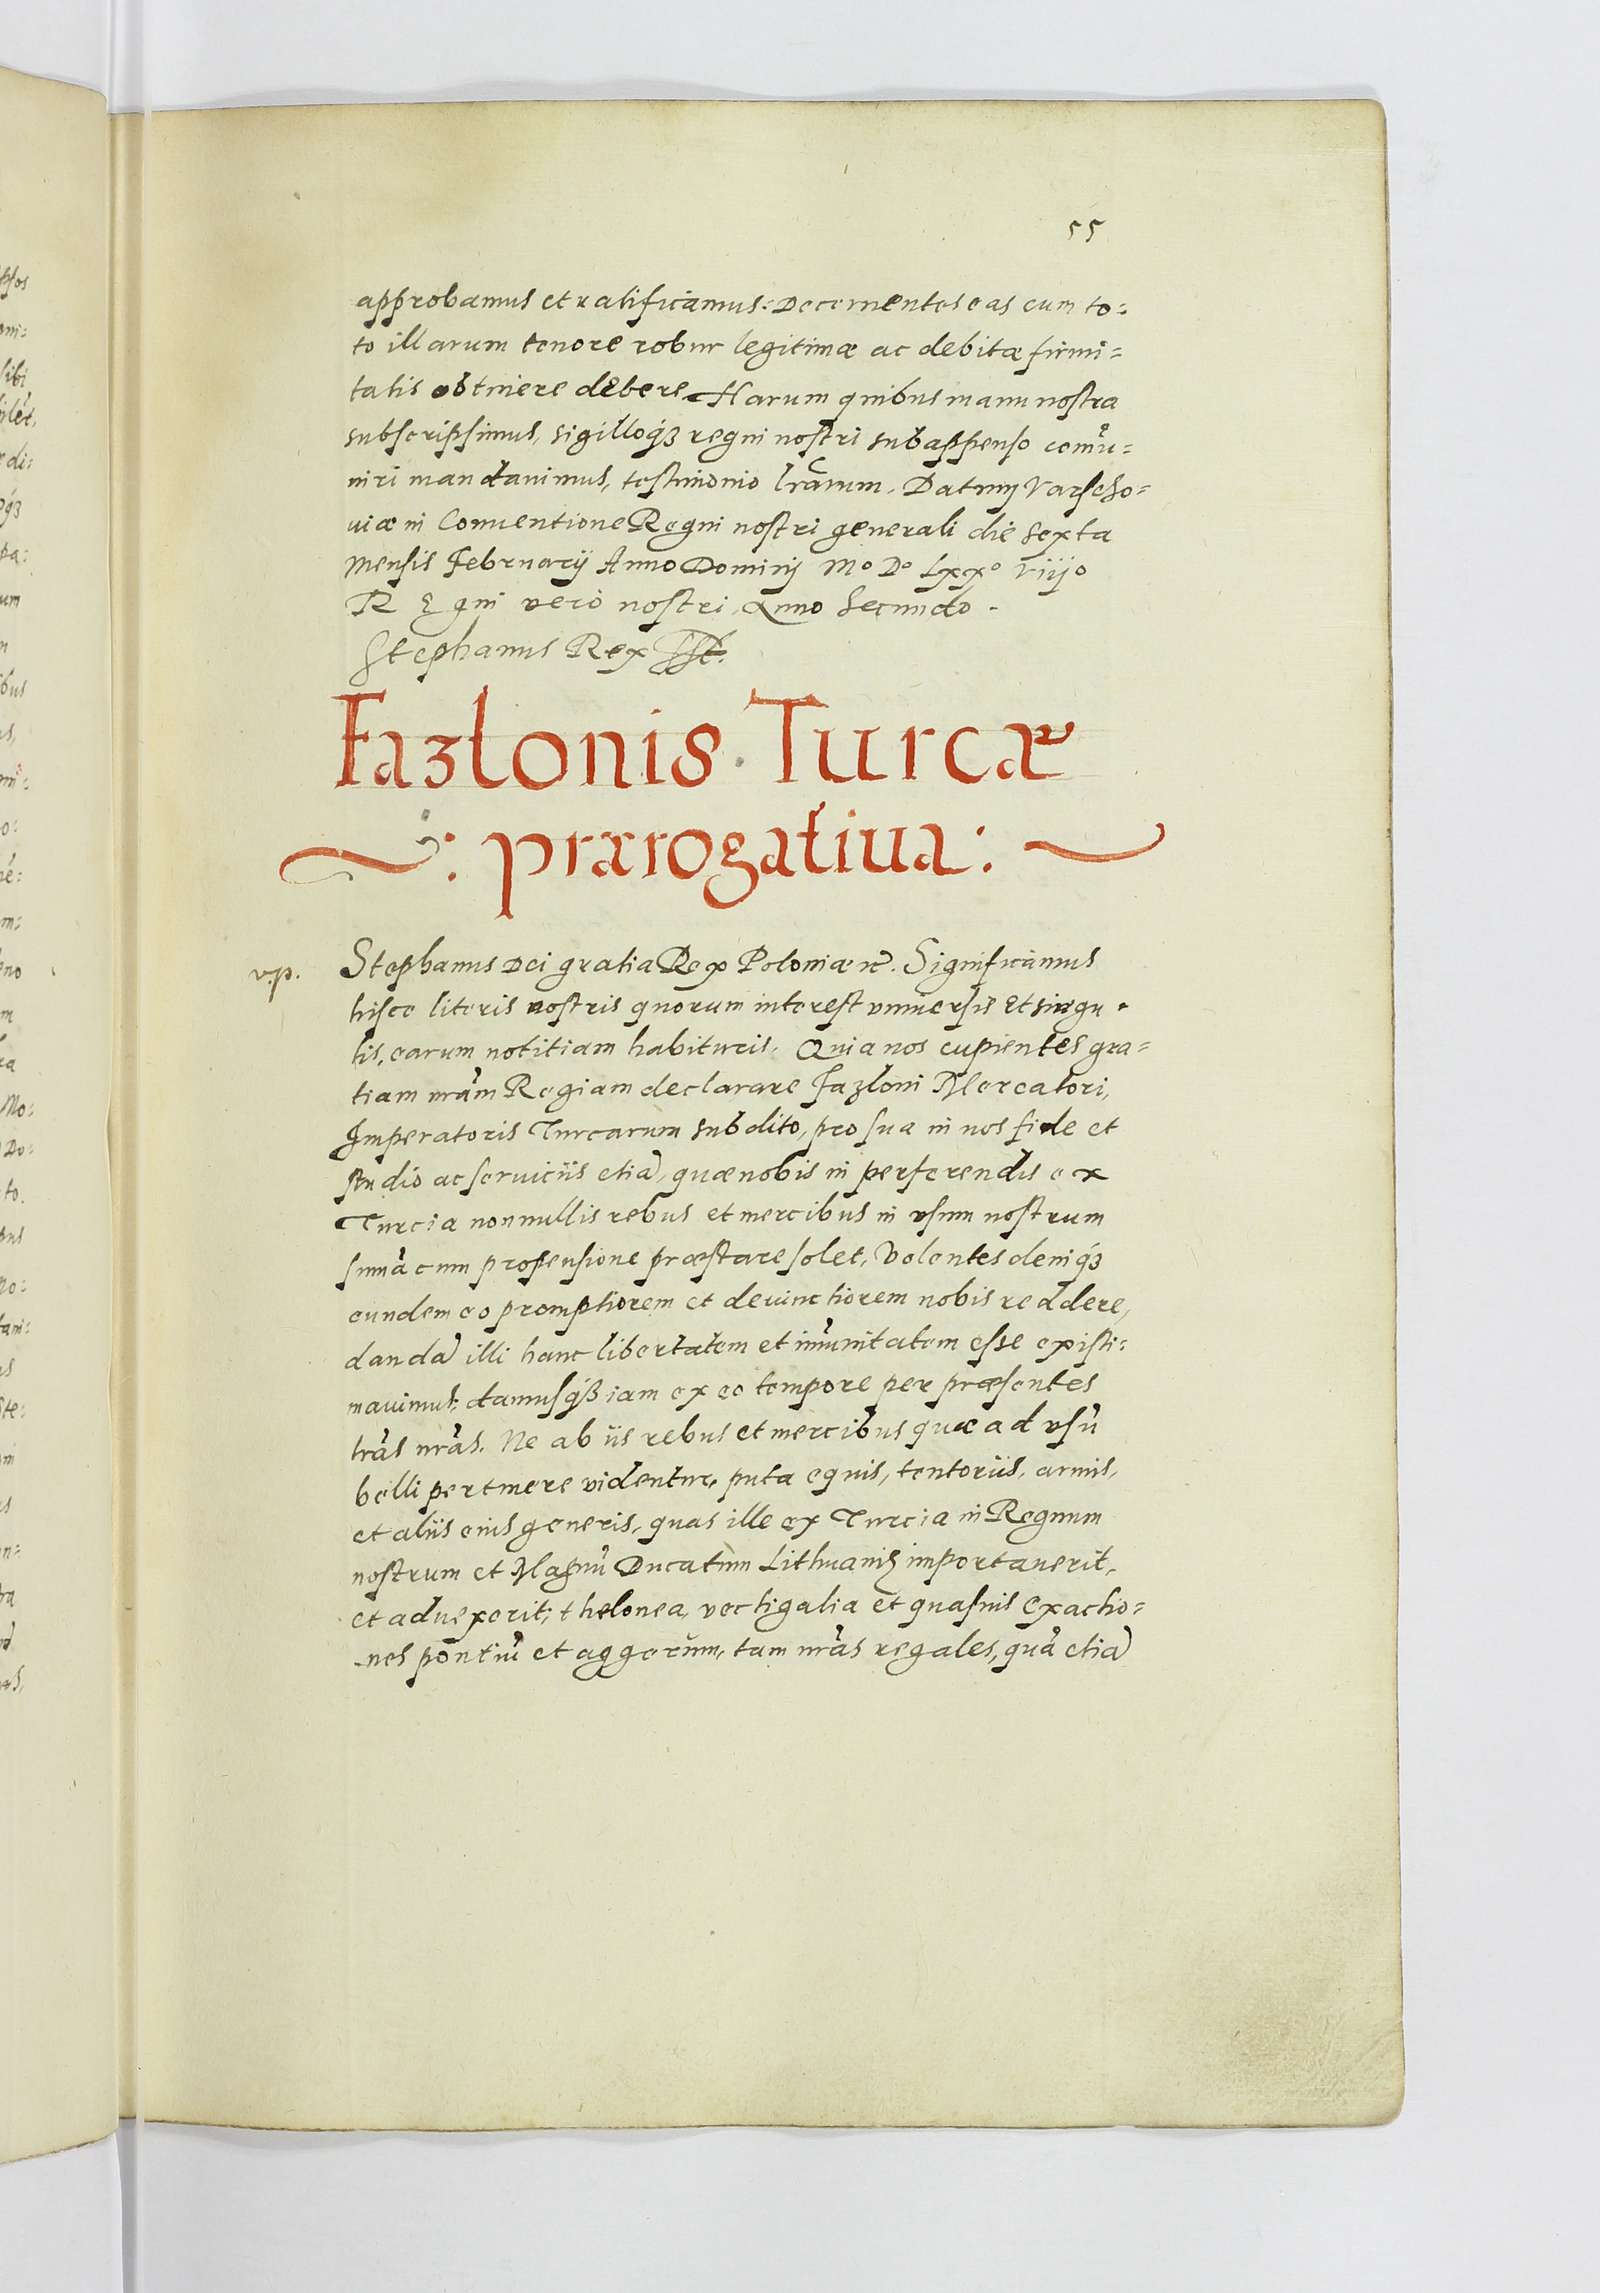 55
approbamus et ratificamus: Decernentes eas cum to=
to illarum tenore robur legitimæ ac debitæ firmi=
tatis obtinere debere. Harum quibus manu nostra
subscripsimus, sigilloq́ꝫ regni nostri subappenso comū=
niri mandauimus, testimonio lrārum. Datum Varscho=
uiæ in Conuentione Regni nostri generali die sexta
mensis Februarij Anno Dominj Mº Dº Lxxº viijo
Regni vero nostri Anno Secundo.
Stephanus Rex sst.
Fazlonis Turcæ
: prærogatiua:
v.p.
Stephanus Dei gratia Rex Poloniæ ꝛc̃. Significamus
hisce literis nostris quorum interest vniuersis et singu=
lis, earum notitiam habituris. Quia nos cupientes gra=
tiam nrām Regiam declarare Fazloni Mercatori,
Imperatoris Turcarum subdito, pro sua in nos fide et
studio ac seruiciis etiā, quæ nobis in perferendis ex
Turcia nonnullis rebus et mercibus in vsum nostrum
sumā cum propensione præstare solet, Volentes deniq́ꝫ
eundem eo promptiorem et deuinctiorem nobis reddere,
dandā illi hanc libertatem et imūnitatem esse existi=
mauimus, damusq́ꝫ iam ex eo tempore per præsentes
lrās nrās. Ne ab iis rebus et mercibus quæ ad vsū
belli pertinere videntur, puta equis, tentoriis, armis,
et aliis eius generis, quas ille ex Turcia in Regnum
nostrum et Magnū Ducatum Lithuanię importauerit,
et aduexerit; thelonea, vectigalia et quasuis exactio=
nes pontiū et aggerum, tam nrās regales, quā etiā